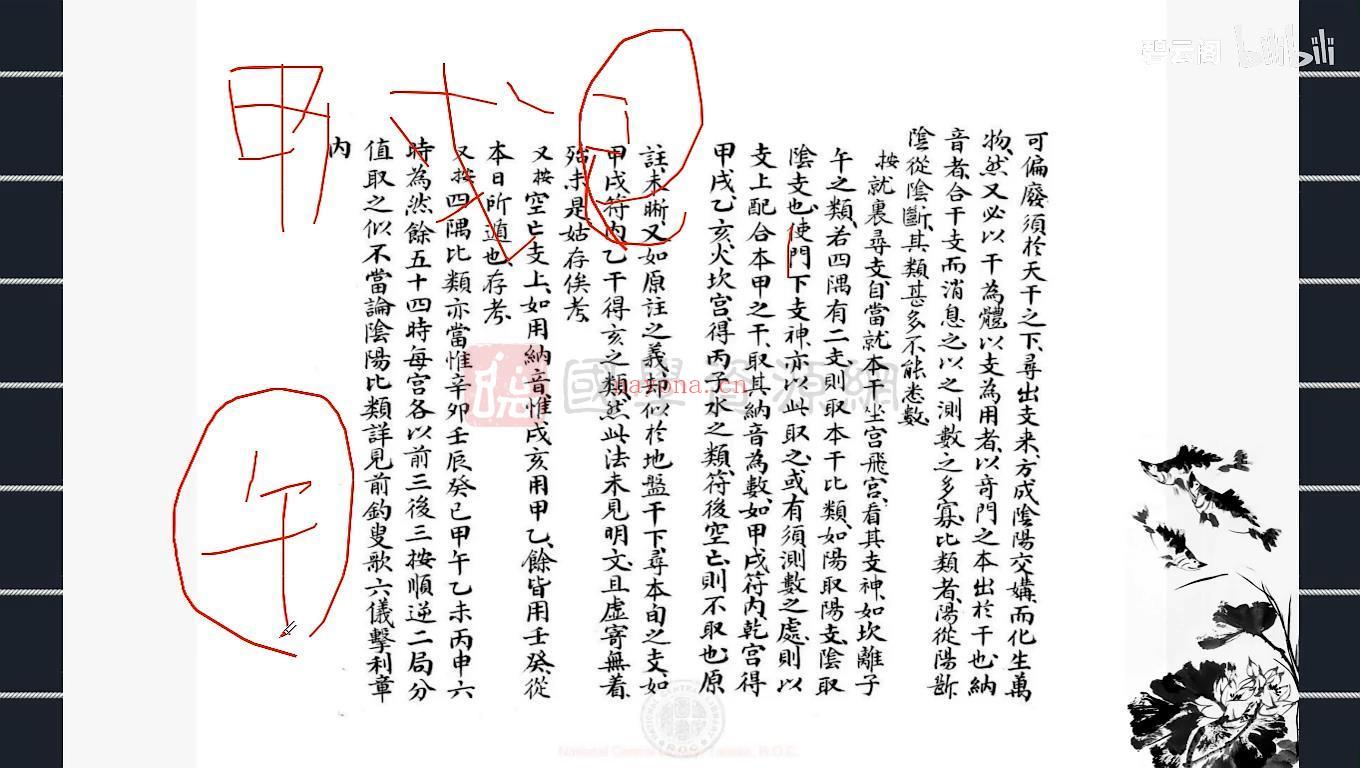 可偏廢須於天干之下尋出支来方成陰陽交媾而化生萬
物然又必以干為體以支為用者以奇門之本出於干也納
音者合干支而消息之以之測數之多寡比類者陽從陽斷
陰從陰斷其類甚多不能悉數
按就裏尋支自當就本干坐宫飛宫看其支神如坎離子
午之類若四隅有二支則取本干比類如陽取陽支陰取
陰支也使門下支神亦以此取之或有須測數之處則以
支上配合本甲之干取其納音為數如甲戌符内乾宫得
甲戌乙亥火坎宫得丙子水之類符後空亡則不取也原
註未晰又如原註之義却似於地盤干下尋本旬之支如
甲戌符内乙干得亥之類然此法未見明文且虛寄無着
殆未是姑存俟考
又按空亡支上如用納音惟戌亥用甲乙餘皆用壬癸從
本日所遁也存考
又按四隅比類亦當惟辛卯壬辰癸巳甲午乙未丙申六
時為然餘五十四時每宫各以前三後三按順逆二局分
值取之似不當論陰陽比類詳見前釣叟歌六儀擊利章
内
甲戌己
午
國學資源網
nayona.cn
碧云阁 bilibili